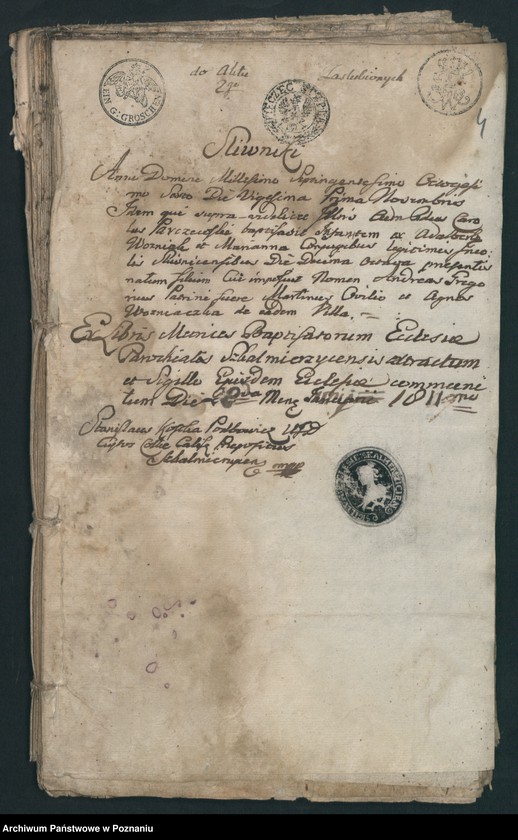 do Aktu
2go
Zaślubionych
EIN G: GROSCHEN
4
Sliwniki
Anno Domini Millesimo Septingentesimo Octogesi
mo Sexto Die Vigesima Prima Novembris
Idem qui supra
lus Parczewski baptisavit Infantem ex Adalberto
Wozniak et Marianna Conjugibus legitimis Inco
lis Sliwnicensibus Die Decima Octava praesentis
natum filium cui imposuit Nomen Andreas Grego
rius Patrini fuere Martinus et Agnes
Wozniaczka de eadem Villa.
Ex Libris Metrices Baptisatorum Ecclesiae
Parochialis Skalmierzycensis extractum
et Sigillo Ejusdem Ecclesiae communi
tum Die Mens 1811mo
Stanislaus Kostka
Custos Praepositus
Skalmierzycen mpp
Archiwum Państwowe w Poznaniu